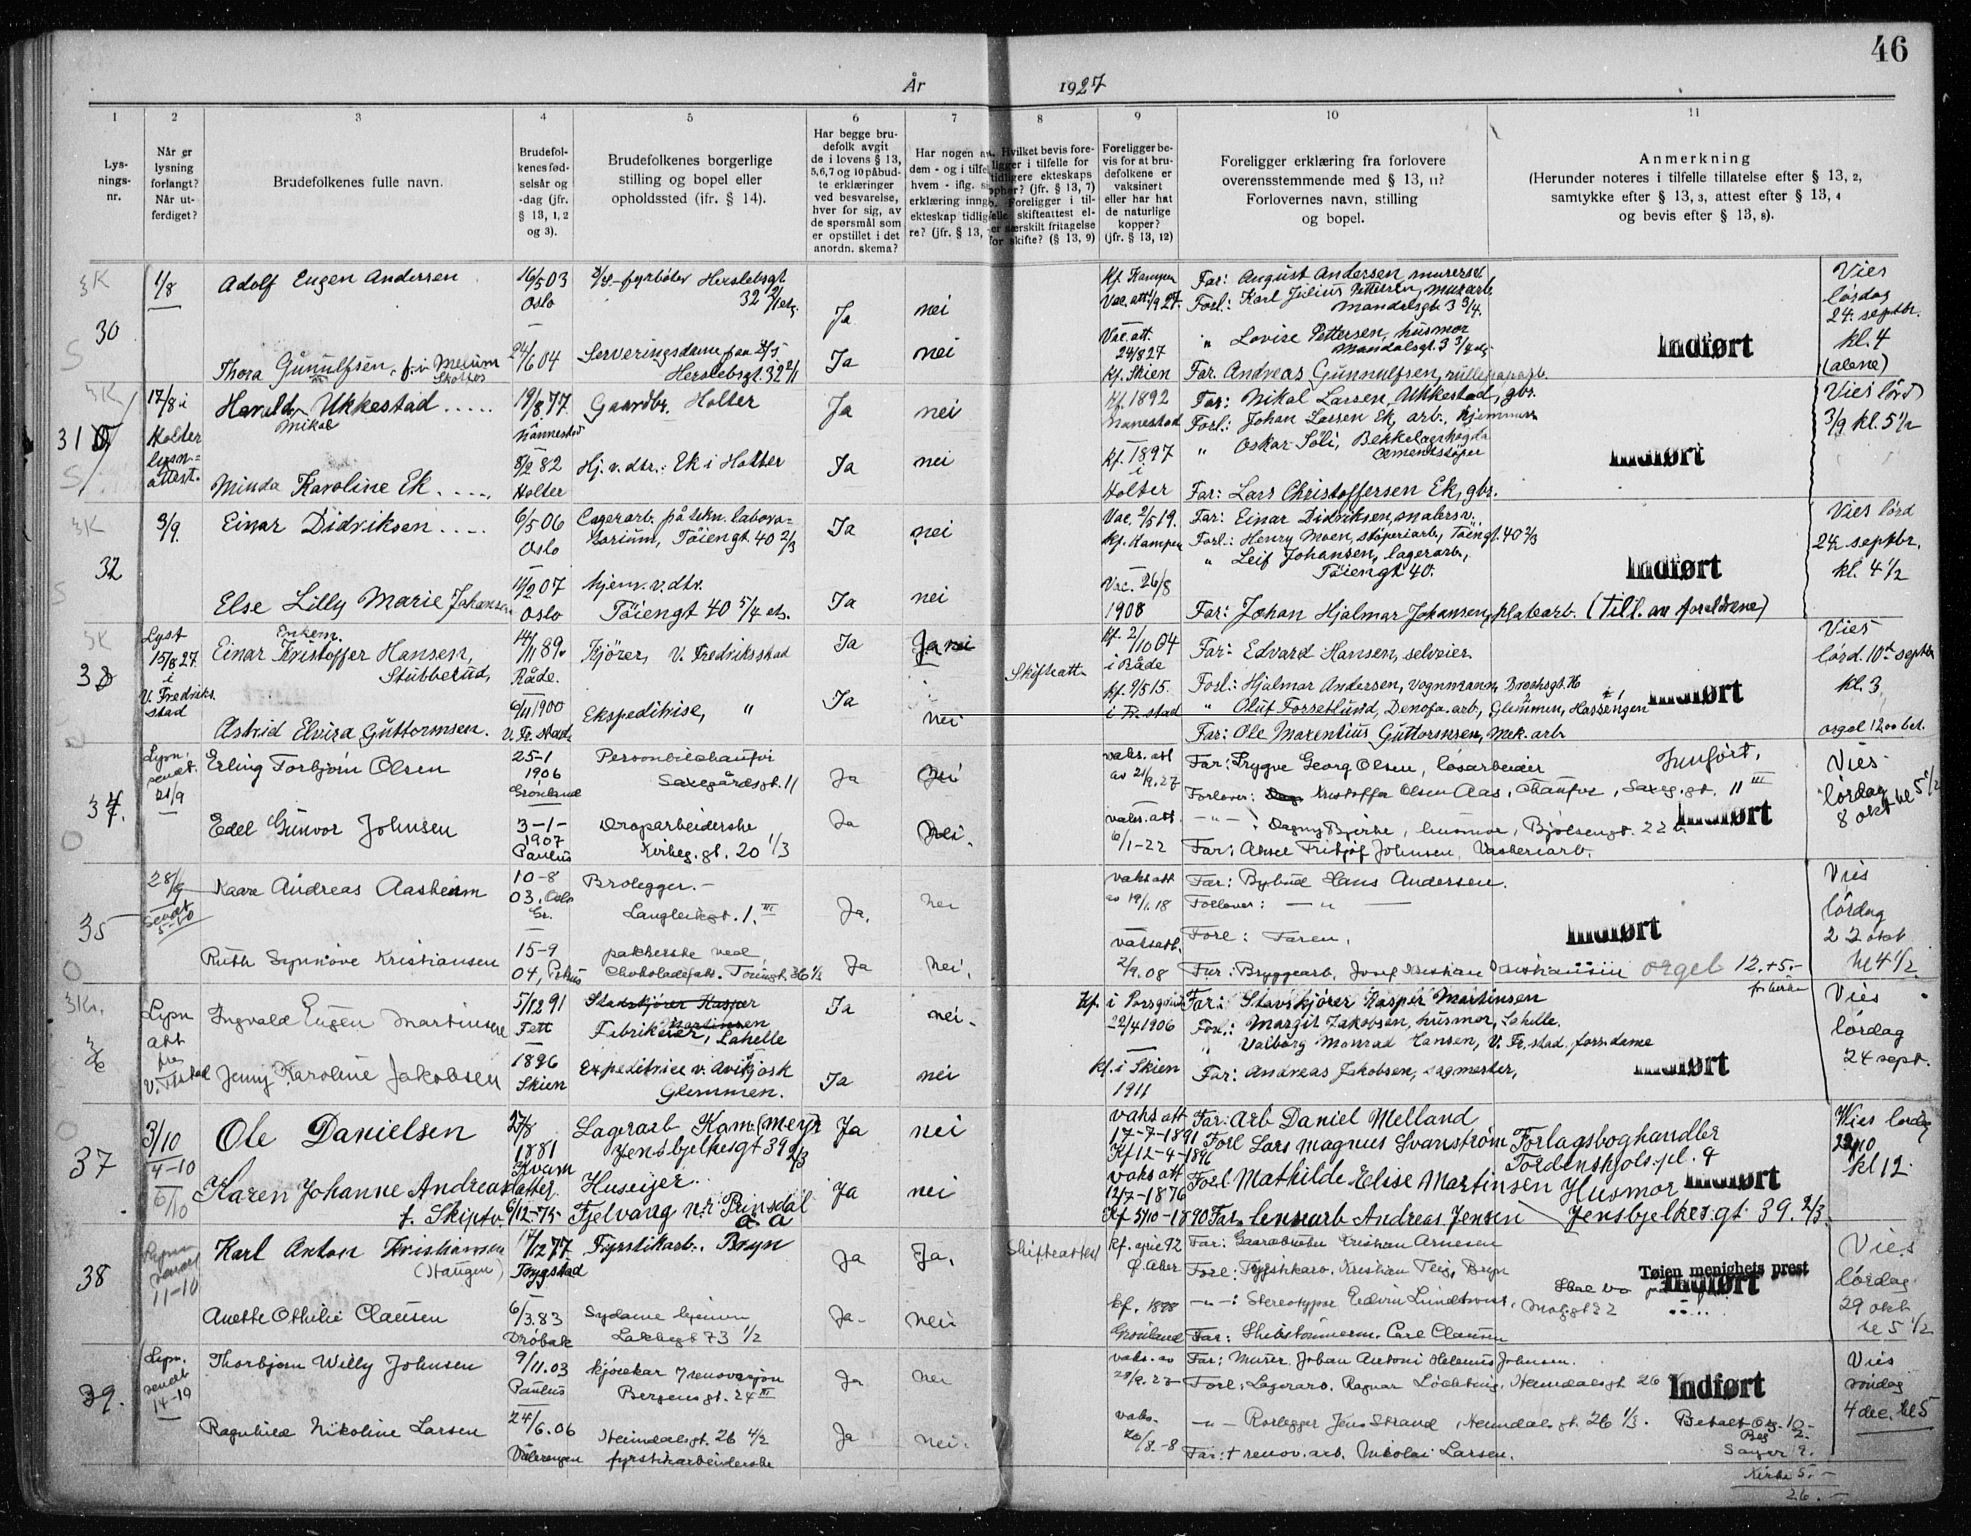 46
År 1927
1 2 3 4 5 6 7 8 9 10 11
Lys-
nings-
nr.
Når er
lysning
forlangt?
Når ut-
ferdiget?
Brudefolkenes fulle navn.
Brudefol-
kenes fød-
selsår og
-dag (jfr.
§ 13, 1, 2
og 3).
Brudefolkenes borgerlige
stilling og bopel eller
opholdssted (jfr. § 14).
Har begge bru-
defolk avgit
de i lovens § 13,
5,6,7 og 10 påbud-
te erklæringer
ved besvarelse,
hver for sig, av
de spørsmål som
er opstillet i det
anordn. skema?
Har nogen av
dem - og i tilfelle
hvem - iflg.
erklæring inng
ekteskap tidlig
re? (jfr. § 13,
Hvilket bevis fore-
ligger i tilfelle for
tidligere ekteskaps
ophør? (jfr. § 13, 7)
Foreligger i til-
felle skifteattest el-
er særskilt fritagelse
for skifte? (§ 13, 9)
Foreligger be-
vis for at bru-
defolkene er
vaksinert
eller har hat
de naturlige
kopper?
(jfr. § 13, 12)
Foreligger erklæring fra forlovere
overensstemmende med § 13, 11?
Forlovernes navn, stilling
og bopel.
Anmerkning
(Herunder noteres i tilfelle tillatelse efter § 13, 2,
samtykke efter § 13, 3, attest efter § 13, 4
og bevis efter § 13, 8).
3K
30
1/8
Adolf Eugen Andersen
16/5 03
Oslo
fyrbøter Herslebsgt
32
Ja
nei
Kf. Kampen
Vac. att. 1/9 27.
Far: August Andersen, murersv.
Forl: Karl Julius Pettersen, murarb.
Mandalsgt 3 3/4.
Vies
lørdag
24. septbr.
kl. 4
(alene)
Thora Gunulfsen, f. i Melum
24/6 04
Serveringsdame
Herslebsgt 32 2/1
Ja
nei
Vac. att.
24/8 27
Kf. Skien
" Lovise Pettersen, husmor
Mandalsgt 3
Far. Andreas Gunnulfsen,
Indført
31
17/8 i
Holter
lysn=
attest.
Harald Ukkestad .....
Mikal
19/8 77.
Nannestad
Gaardbr. Holter
Ja
nei
Kf. 1892
Nannestad
Far: Nikol Larsen, Ukkestad, gbr.
Forl: Johan Larsen Ek, arb.
" Oskar Soli, Bekkelagshøgda
Cementstøper
Vies lørd
3/9 kl. 5 1/2
Minda Karoline Ek. ....
8/2 82
Holter
Hj. v. dtr.: Ek i Holter
Ja
nei
kf. 1897
i
Holter
Far: Lars Christoffersen Ek, gbr.
Indført
3K
32
3/9.
Einar Didriksen ....
6/5 06
Oslo
Lagerarb. på tekn. labora=
torium, Töiengt 40 2/3
Ja
nei
Vac. 2/5 19.
kf. Kampen
Far: Einar Didriksen, malersv.
Forl.: Henry Moen, støperiarb., Töiengt. 40 2/3
" Leif Johansen, lagerarb.,
Töiengt 40.
Vies lørd
24 septbr.
kl. 4 1/2
Else Lilly Marie Johansen
Oslo
hjem. v. dtr.
Töiengt 40 5/4 et.
Ja
nei
Vac. 26/8
1908
Far: Johan Hjalmar Johansen, platearb. (Till. av foreldrene)
Indført
3K
33
Lyst
15/8 27.
i
V. Fredriks
stad
Enkem.
Einar Kristoffer Hansen,
Stubberud,
14/11 89.
Råde.
Kjører, V. Fredriksstad
Ja
Ja nei
Skifteatt.
kf. 2/10 04
i Råde
Far: Edvard Hansen, selveier.
Forl: Hjalmar Andersen, vognmann, Brochsgt. 16
" Oluf Forsetlund, Denofa. arb., Glemmen, Hassengen
Vies
lørd. 10de septbr
kl. 3
orgel 12 oo bet.
Astrid Elvira Guttormsen.
6/11 1900
V. Fr. stad
Ekspeditrise, "
Ja
nei
kf. 9/5 15.
i Fr. stad
Far: Ole Marentius Guttormsen, mek. arb
Indført
34.
Lysn.
sendt
21/9
Erling Torbjørn Olsen
25-1
1906
Grønland
Personbilchauför
Saxegårdsgt. 11
Ja
nei
vaks. att
av 21/9. 27
Far: Trygve Georg Olsen, løsarbeider
Forlover: Kristoffer Olsen Aas, chauför, Saxeg. gt. 11 III
Innført,
Vies
lørdag
8 okt kl 5 1/2
Edel Gunvor Johnsen
3-1-
1907
Paulus
Droparbeiderske
Kirkeg. gt. 20 1/3
Ja
nei.
vaks. att.
6/1-22
— " — : Dagny Bjerke, husmor, Bjølsengt. 22 b.
Far: Aksel Fritjof Johnsen, Vaskeriarb.
Indført
35
28/9
sendt
5-10
Kaare Andreas Aasheim
10-8
03. Oslo
Gr.
Brolegger. -
Langleiksgt. 1. III
Ja,
nei
vaks att
av 19/1. 18
Far: Bybud Hans Andersen.
Forlover: — " —
Vies
lørdag
22 okt
kl 4 1/2
Ruth Synnöve Kristiansen
15-9
04, Petrus
pakkerske ved
Chokoladefabr. Töiengt. 36 1/2
Ja
nei,
vaksatt.
2/9. 08
Forl: Faren,
Far: Bryggearb. Josef Kristian Kristiansen orgel 12.+5.-
Indført
3Kr.
36
Lysn
att
fra
V. Frstad
Ingvald Eugen Martinsen
5/12 91
Stavskjører Kasper
Martinsen
Fabrikeier, Lahelle
Ja
nei.
Kf. i Porsgrund
22/4 1906
Far: Stavskjører Kasper Martinsen
Forl: Margit Jakobsen, husmor, Lahelle.
" Valborg Monrad Hansen, V. Fr. stad, forr. dame
Vies
lördag
24 sept.
Jenny Karoline Jakobsen
1896
Skien
Expeditrise v. Aviskjosk
Glemmen.
Ja
nei
Kf. i Skien
1911
Far: Andreas Jakobsen, sagmester,
Indført
37
3/10
4-10
6/10
Ole Danielsen
27/8
1881
Kvam
Lagerarb Kam (meyr
Jensbjelkesgt 39 2/3
Ja
nei
vaks att
17-7-1891
Kf 12-4-1896
Far: Arb Daniel Melland
Forl Lars Magnus Svanström Forlagsboghandler
Tordenskjols. pl. 9
Vies lordag
22/10
kl 12.
Karen Johanne Andreasdatter
f. Skiptv.
6/12-75
Huseijer
Fjelvang nr Prinsdal
Ja
nei
vaks att
12/7-1876
Kf 5/10-1890
Forl Mathilde Elise Martinsen Husmor
Far. lennarb Andreas Jensen Jensbjelkes. gt. 39. 2/3
Indført
38
Lysn
sendt
11-10
Karl Anton Kristiansen
(Haugen)
17/12 77
Trygstad
Fyrstikarb., Bryn
Ja
Ja,
Skifteattest
kf. april 92
Ø. Aker
Far: Gaardbruker Kristian Arnesen
Forl: Fyrstikkarb. Kristian Teig, Bryn
Tøien menighets prest
Vies
lördag
29 okt.
kl 5 1/2
Anette Othilie Clausen
6/3. 83
Drøbak
Sydame hjemme
Lakkegt 73 1/2
Ja.
nei
kf. 1898
Grønland
— " — : Stereotypør Edvin Lundkvist,
Far: Skibstømmerm. Carl Clausen
Indført
39.
Lysn.
sendt
14-10
Thorbjørn Willy Johnsen
9/11. 03
Paulus
kjørekar i renovasjon
Bergensgt. 24 III
Ja
nei
vaks. av
Far: Murer Johan Antoni Helenus Johnsen.
Forl: Lagerarb. Ragnar Løchting, Heimdalsgt 26
Vies
söndag
4 dec. kl 5
Ragnhild Nikoline Larsen
24/6. 06
Vålerengen
Heimdalsgt. 26 4/2
fyrstikarbeiderske
Ja
nei.
vaks.
— " — Rørlegger Jens Strand, Heimdalsgt. 26 1/3.
Far: † renov. arb. Nikolai Larsen.
Indført
Betalt Org. 10-
Bes 2-
Kirke 5.-
26.-